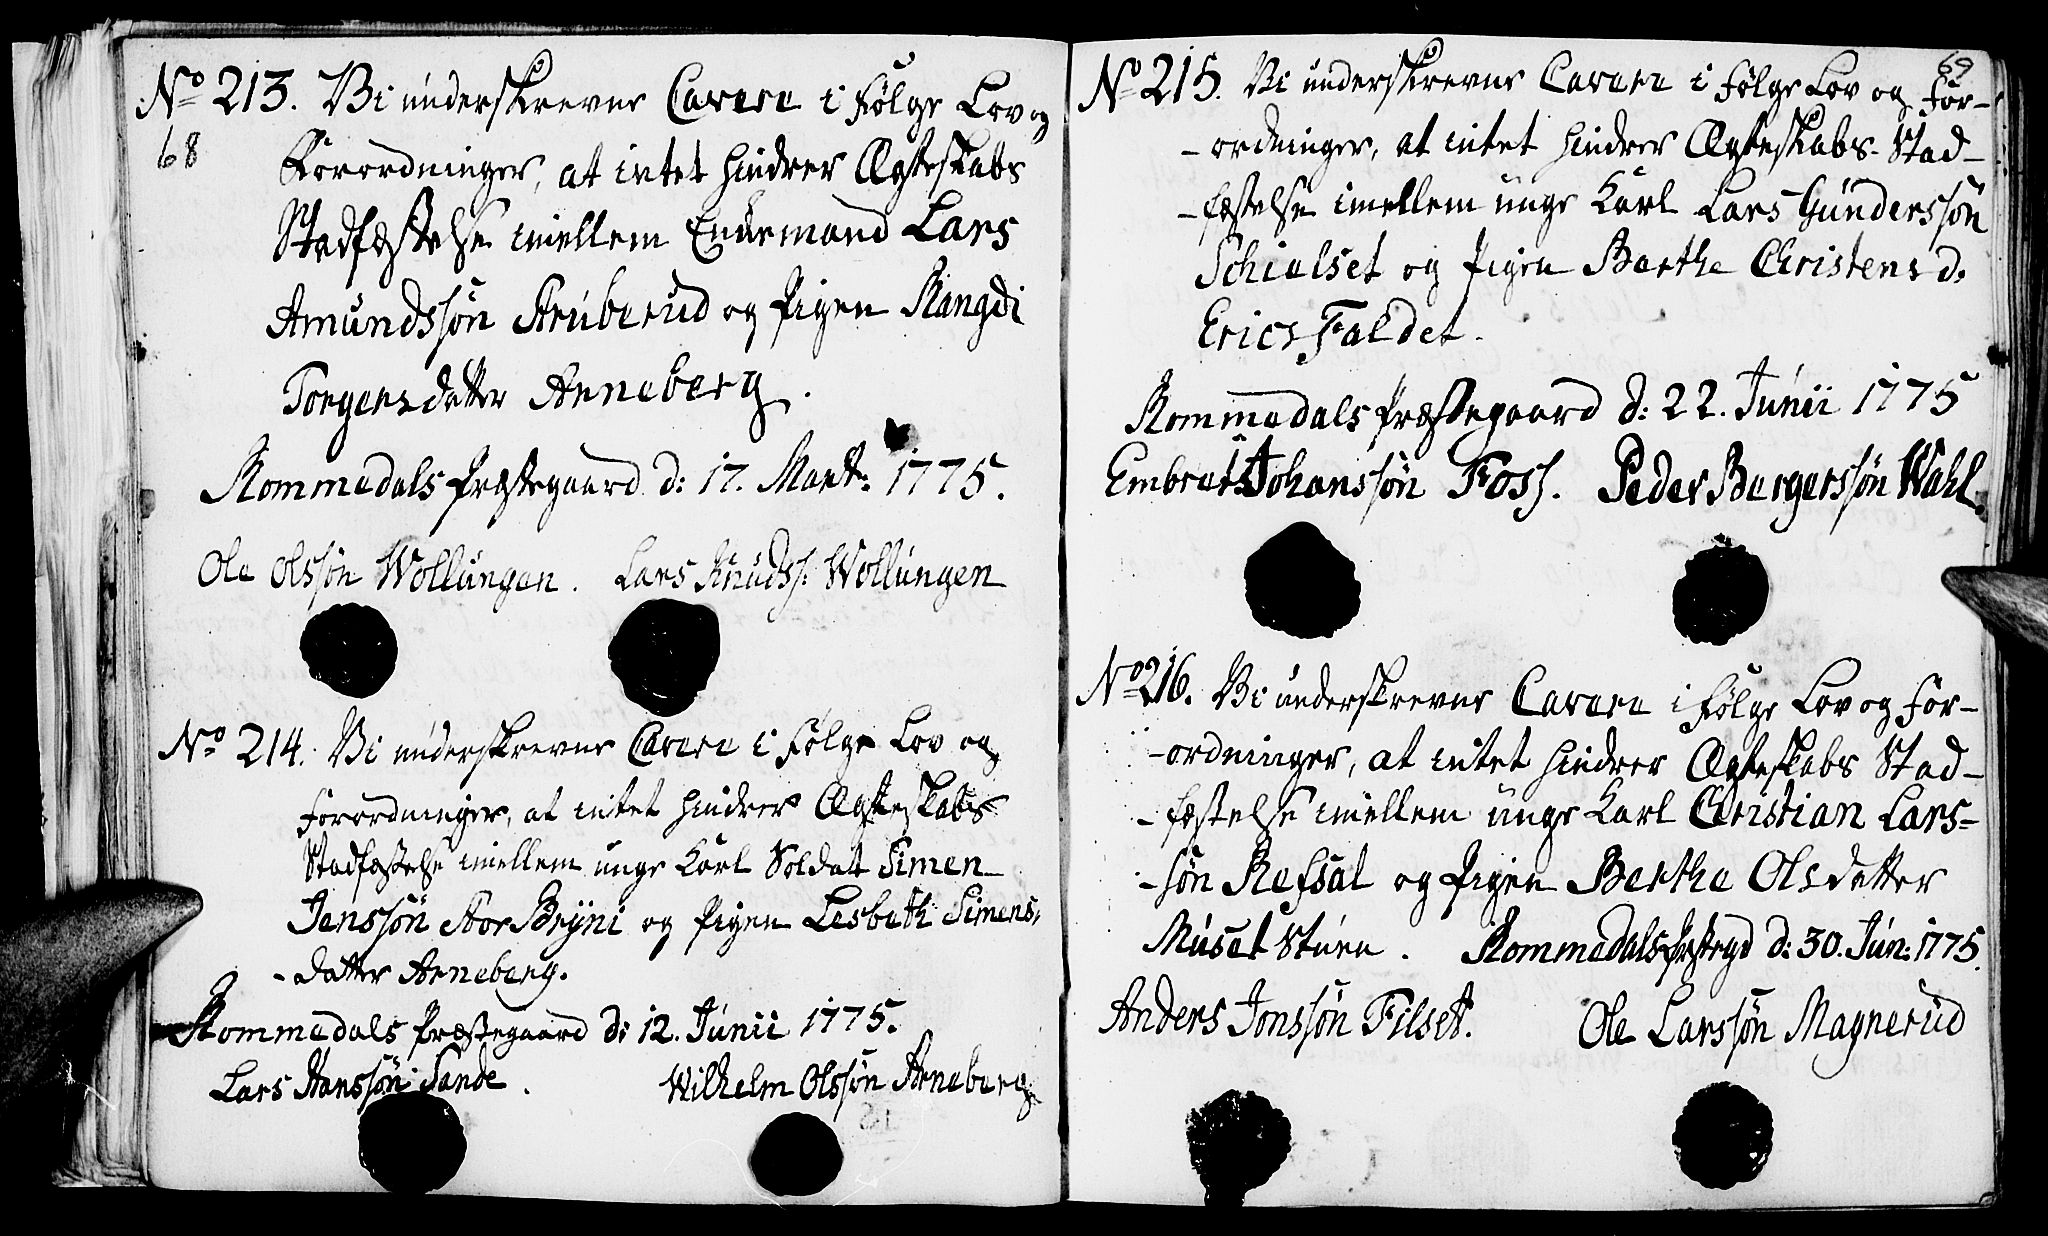 No 213. Vi underskrevne Cavere i følge Lov og
68
Forordninger, at intet hindrer Ægteskabs
Stadfæstelse imellem Enkemand Lars
Amundssøn Struberud og Pigen Rangdi
Torgersdatter Arneberg.
Rommedals Præstegaard d: 17. Mart: 1775.
Ole Olssøn Wollungen. Lars Knudss: Wollungen
No 214. Vi underskrevne Cavere i følge Lov og
forordninger, at intet hindrer Ægteskabs
Stadfæstelse imellem unge Karl Soldat Simen
Jenssøn StorBryni og Pigen Lesbeth Simens-
-datter Arneberg.
Rommedals Præstegaard d: 12. Junii 1775.
Lars Hanssøn Sande. Wilhelm Olssøn Arneberg
69
No 215. Vi underskrevne Cavere i følge Lov og for-
-ordninger, at intet hindrer Ægteskabs-Stad-
-fæstelse imellem unge Karl Lars Gunderssøn
Schielset og Pigen Berthe Christensd.
EricsFaldet.
Rommedals Præstegaard d: 22. Junii 1775
Embret Johanssøn Foss. Peder Bergerssøn Wahl.
No 216. Vi underskrevne Cavere i følge Lov og for-
-ordninger, at intet hindrer Ægteskabs Stad-
-fæstelse imellem unge Karl Christian Lars-
-søn Refsal og Pigen Berthe Olsdatter
Muset Stuen. Rommedals Præstegd d: 30. Jun: 1775.
Anders Jonssøn Filset. Ole Larssøn Magnerud